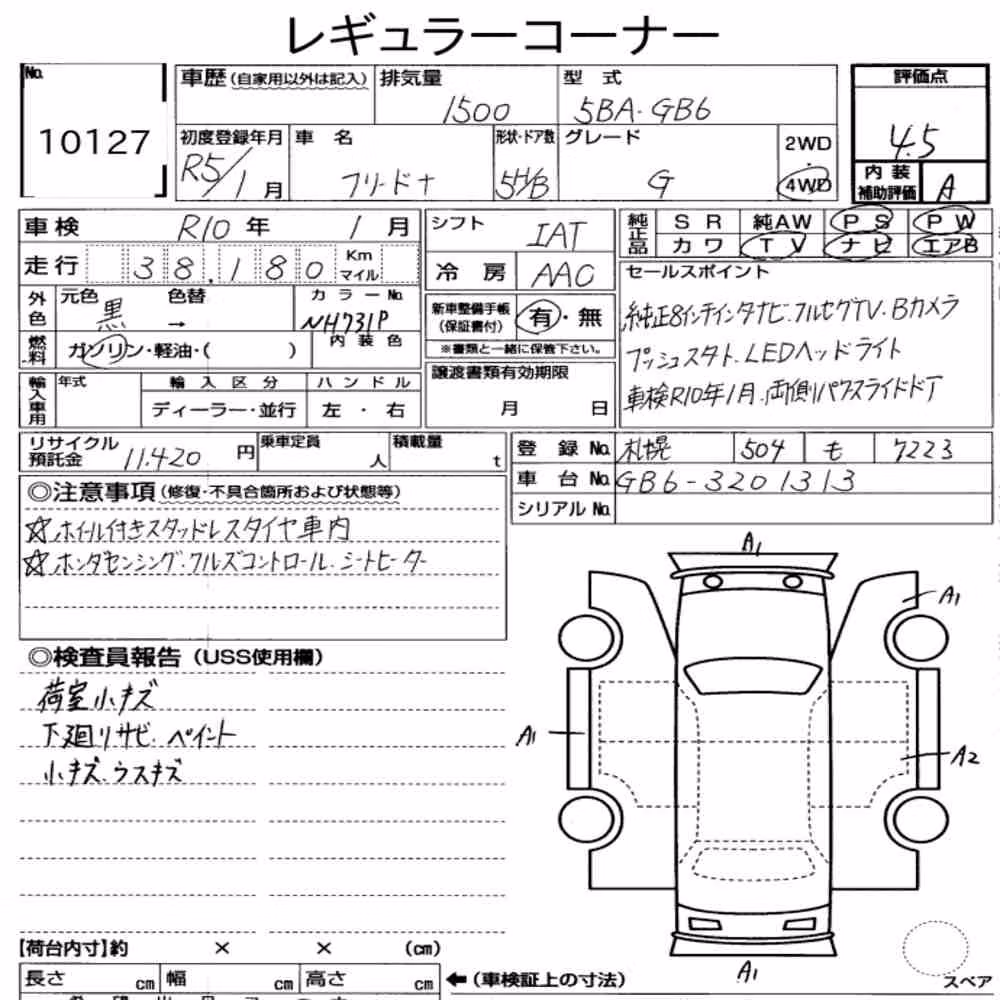 レギュラーコーナー
No.
10127
車歴 (自家用以外は記入)
排気量
1500
型 式
5BA-GB6
評価点
4.5
内装補助評価
A
初度登録年月
R5/1月
車 名
フリード+
形状・ドア数
5H/B
グレード
G
2WD
・
4WD
車検 R10年 1月
走行 38,180 Km マイル
シフト IAT
冷 房 AAC
純正品
SR 純AW PS PW
カワ TV ナビ エアB
外色
元色 黒
色替 →
カラーNo. NH731P
燃料
ガソリン・軽油・( )
内 装 色
新車整備手帳
(保証書付)
有・無
※書類と一緒に保管下さい。
セールスポイント
純正8インチインタナビ.フルセグTV.Bカメラ
プッシュスタト.LEDヘッドライト
車検R10年1月.両側パワスライドドア
輸入車用
年式
輸 入 区 分
ハ ン ド ル
ディーラー・並行
左 ・ 右
譲渡書類有効期限
月 日
リサイクル預託金 11,420 円
乗車定員 人
積載量 t
登 録 No. 札幌 504 も 7223
車 台 No. GB6-3201313
シリアルNo.
◎注意事項(修復・不具合箇所および状態等)
☆ホイール付きスタッドレスタイヤ車内
☆ホンダセンシング.クルズコントロール.シートヒーター
◎検査員報告(USS使用欄)
荷室小キズ
下廻リサビ.ペイント
小キズ.ウスキズ
A1
A1
A1
A2
A1
【荷台内寸】約 × × (cm)
長さ cm 幅 cm 高さ cm
←(車検証上の寸法)
スペア